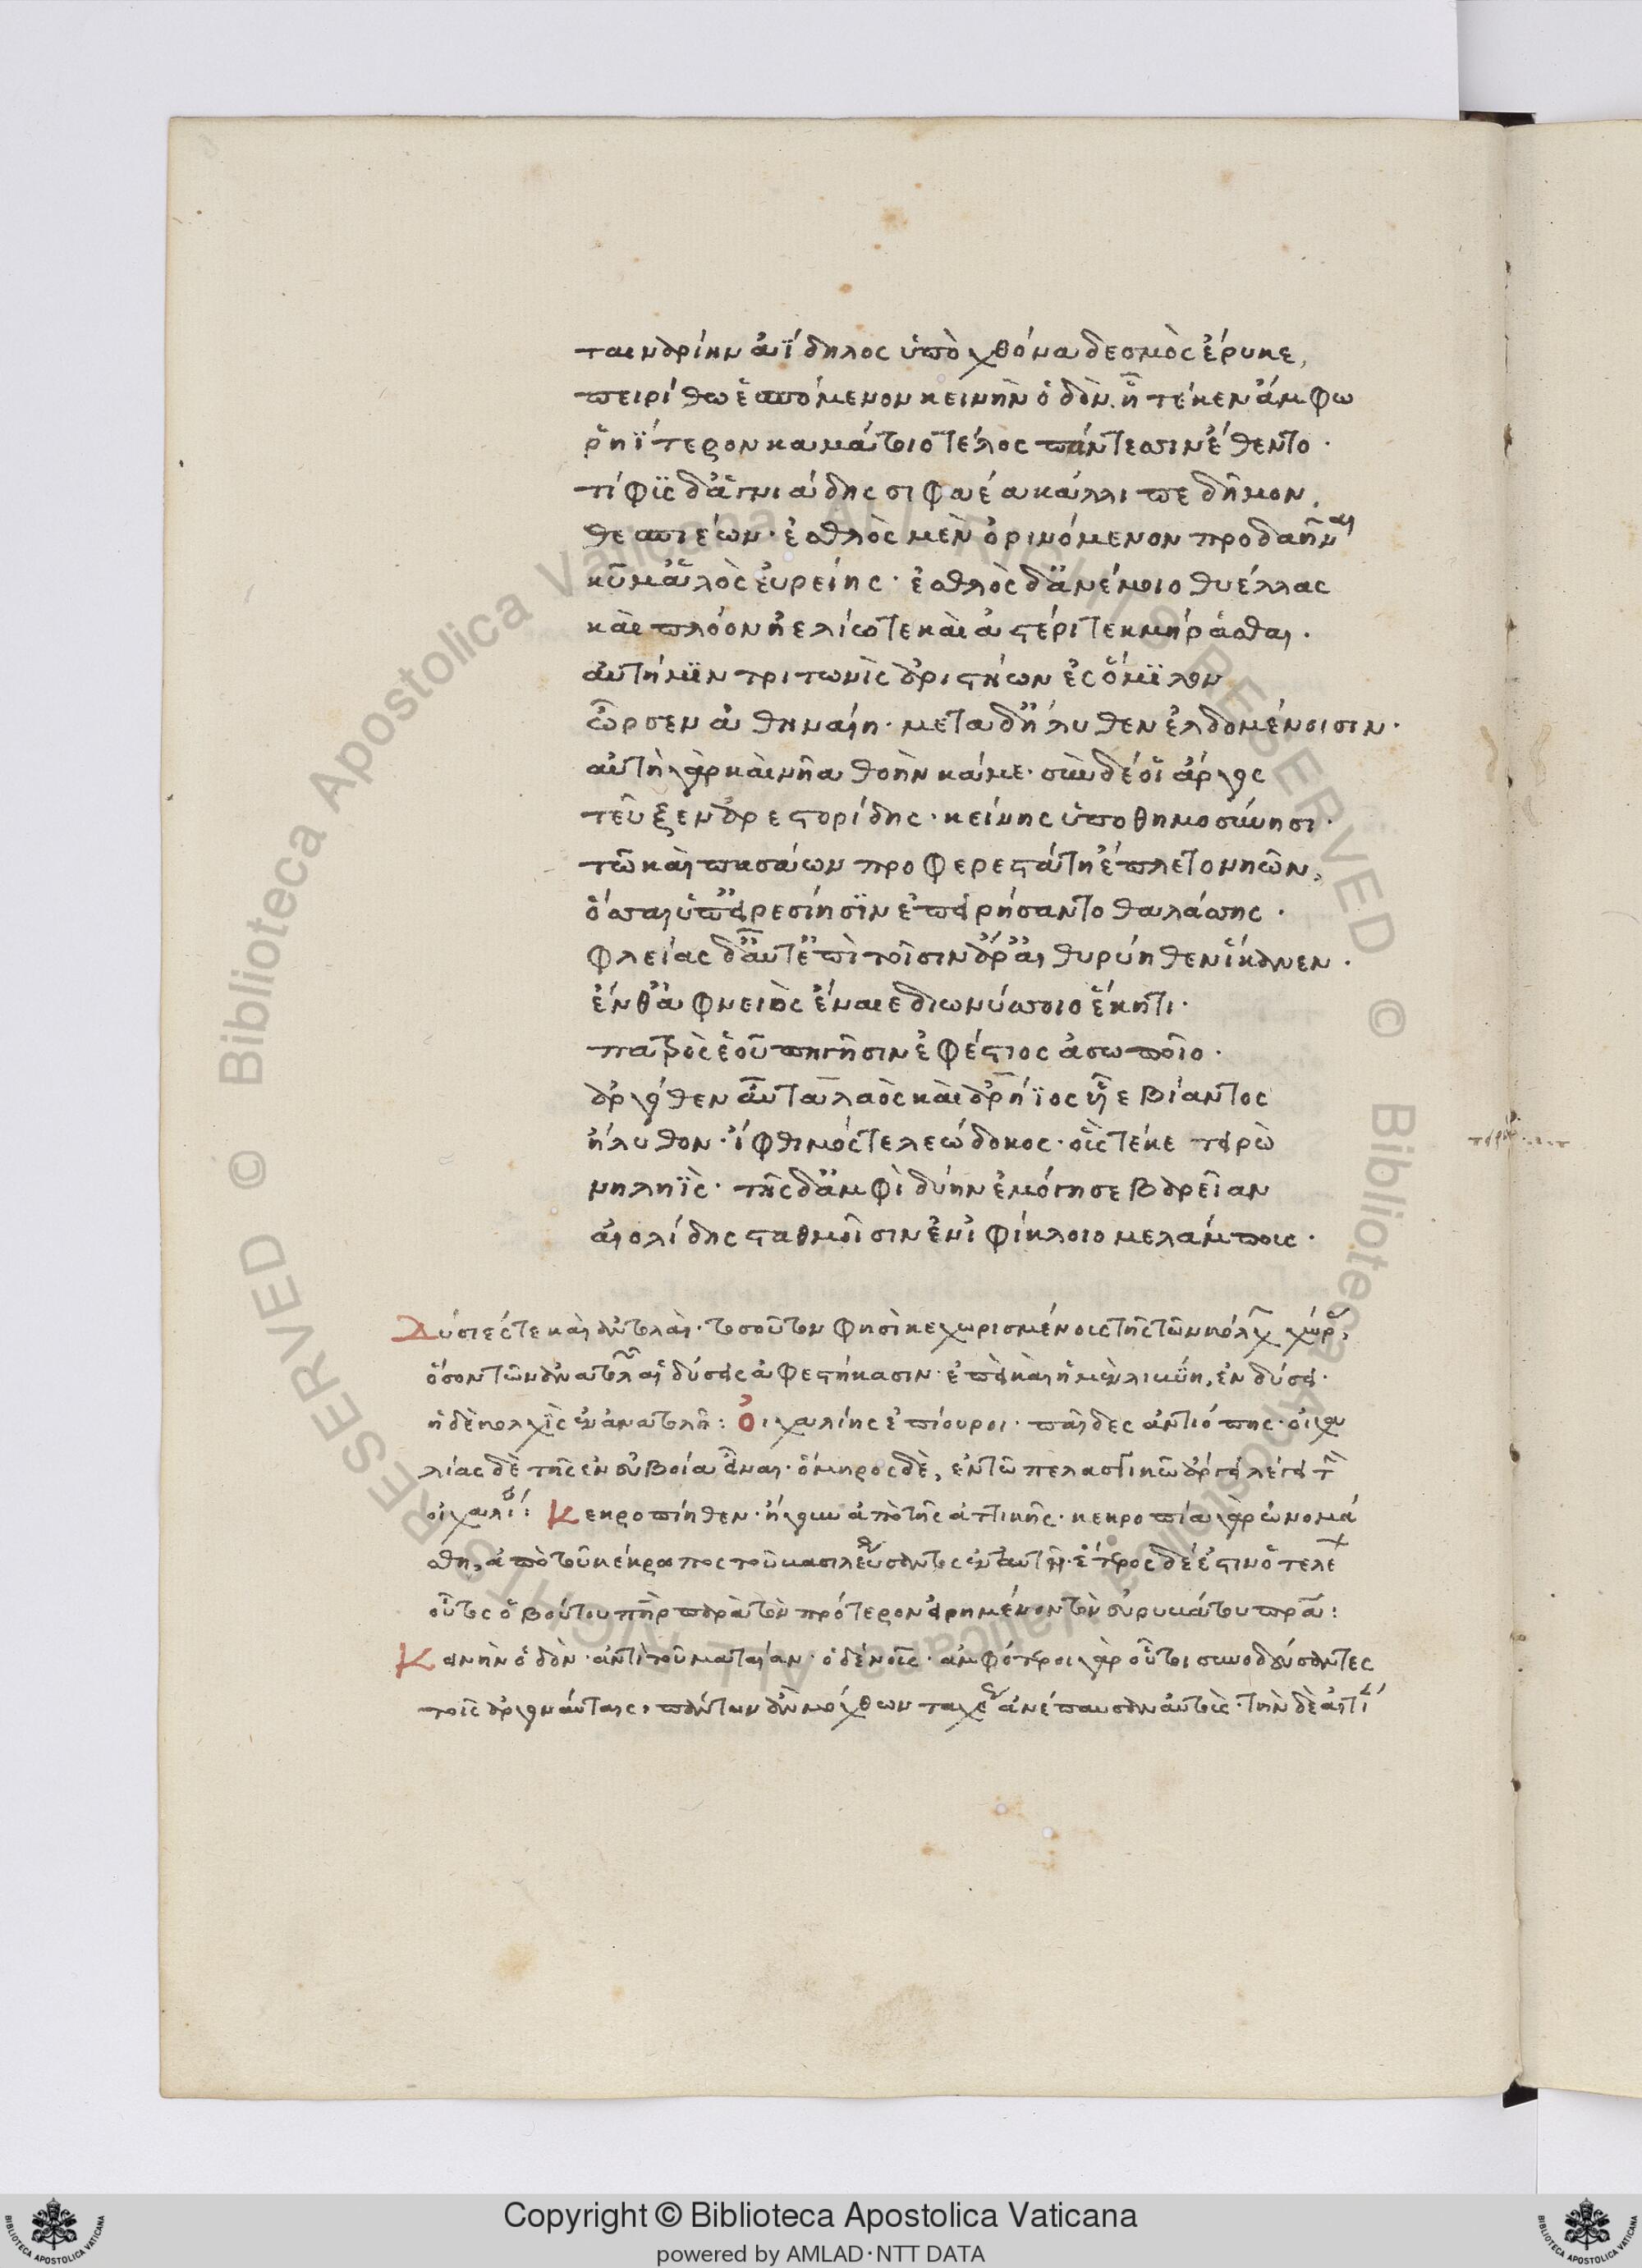 ταιναρίην ἀΐδηλος ὑπὸ χθόνα δεσμὸς ἔρυκε,
πειρίθω ἑσπόμενον κεινὴν ὁδὸν. ἦ τέ κεν ἄμφω
ῥηΐτερον καμάτοιο τέλος πάντεσσιν ἔθεντο.
τίφϊς δ' ἁγνιάδης σιφαέα κάλλιπε δῆμον,
θεσπιέων. ἐσθλὸς μὲν ὀρινόμενον προδαῆναι
κῦμ' ἁλὸς εὐρείης. ἐσθλὸς δ' ἀνέμοιο θυέλλας
καὶ πλόον ἠελίω τε καὶ ἀστέρι τεκμήρασθαι.
αὐτή μϊν τριτωνὶς ἀριστήων ἐς ὅμϊλον
ὦρσεν ἀθηναίη. μετα δ' ἤλυθεν ἐλδομένοισιν.
αὐτὴ γὰρ καὶ νῆα θοὴν κάμε. σὺν δέ οἱ ἄργος
τεῦξεν ἀρεστορίδης. κείνης ὑποθημοσύνησι.
τῶ καὶ πασάων προφερεστάτη ἔπλετο νηῶν,
ὅσσαι ὑπ' εἰρεσίησϊν ἐπειρήσαντο θαλάσσης.
φλείας δ' αὖτ' ἐπὶ τοῖσιν ἀραιθυρέηθεν ἵκανεν.
ἔνθ' ἀφνειὸς ἔναιε διωνύσσοιο ἕκητι.
πατρὸς ἑοῦ πηγῆσιν ἐφέστιος ἀσωποῖο.
ἀργόθεν αὖ ταλαὸς καὶ ἀρήϊος υἷε βίαντος
ἤλυθον. ἴφθιμός τε λεώδοκος. οὓς τέκε πειρὼ
νηληῒς. τῆς δ' ἀμφὶ δύην ἐμόγησε βαρεῖαν
αἰολίδης σταθμοῖσιν ἐν ἰφίκλοιο μελάμπους.
Δύσιές τε καὶ ἀντολαὶ. τοσοῦτον φησὶ κεχωρισμένοις τῆς τῶν κόλχ χώρ,
ὅσον τῶν ἀνατολῶν αἱ δύσεις ἀφεστήκασιν. ἐπεὶ καὶ ἡ μὲν λικύη, ἐν δύσει.
ἡ δὲ κολχὶς ἐν ἀνατολῆ: Οἰχαλίης ἐπίουροι. παῖδες ἀντιόπης. οἰχα
λίας δὲ τῆς ἐν εὐβοία εἶναι. ὅμηρος δὲ, ἐν τῶ πελασγικῶ ἄργει λέγει τὴν
οἰχαλί: Κεκροπίηθεν. ἤγουν ἀπὸ τῆς ἀττικῆς. κεκροπία γὰρ ὠνομά
σθη, ἀπὸ τοῦ κέκροπος τοῦ βασιλεύσαντος ἐν αὐτῆ. ἕτερος δέ ἐστιν ὁ τελε
οῦτος ὁ βούτου πὴρ παρὰ τὸν πρότερον εἰρημένον τὸν εὐρυμάτου πρα:
Κεινὴν ὁδὸν. ἀντὶ τοῦ ματαίαν. ὁ δὲ νοῦς. ἀμφότεροι γὰρ οὗτοι συνοδεύσαντες
τοῖς ἀργοναύταις, πάντων ἂν μόχθων ταχε ἀνέπαυσαν αὐτοὺς. τὴν δὲ αἰτί
Copyright © Biblioteca Apostolica Vaticana
powered by AMLAD·NTT DATA